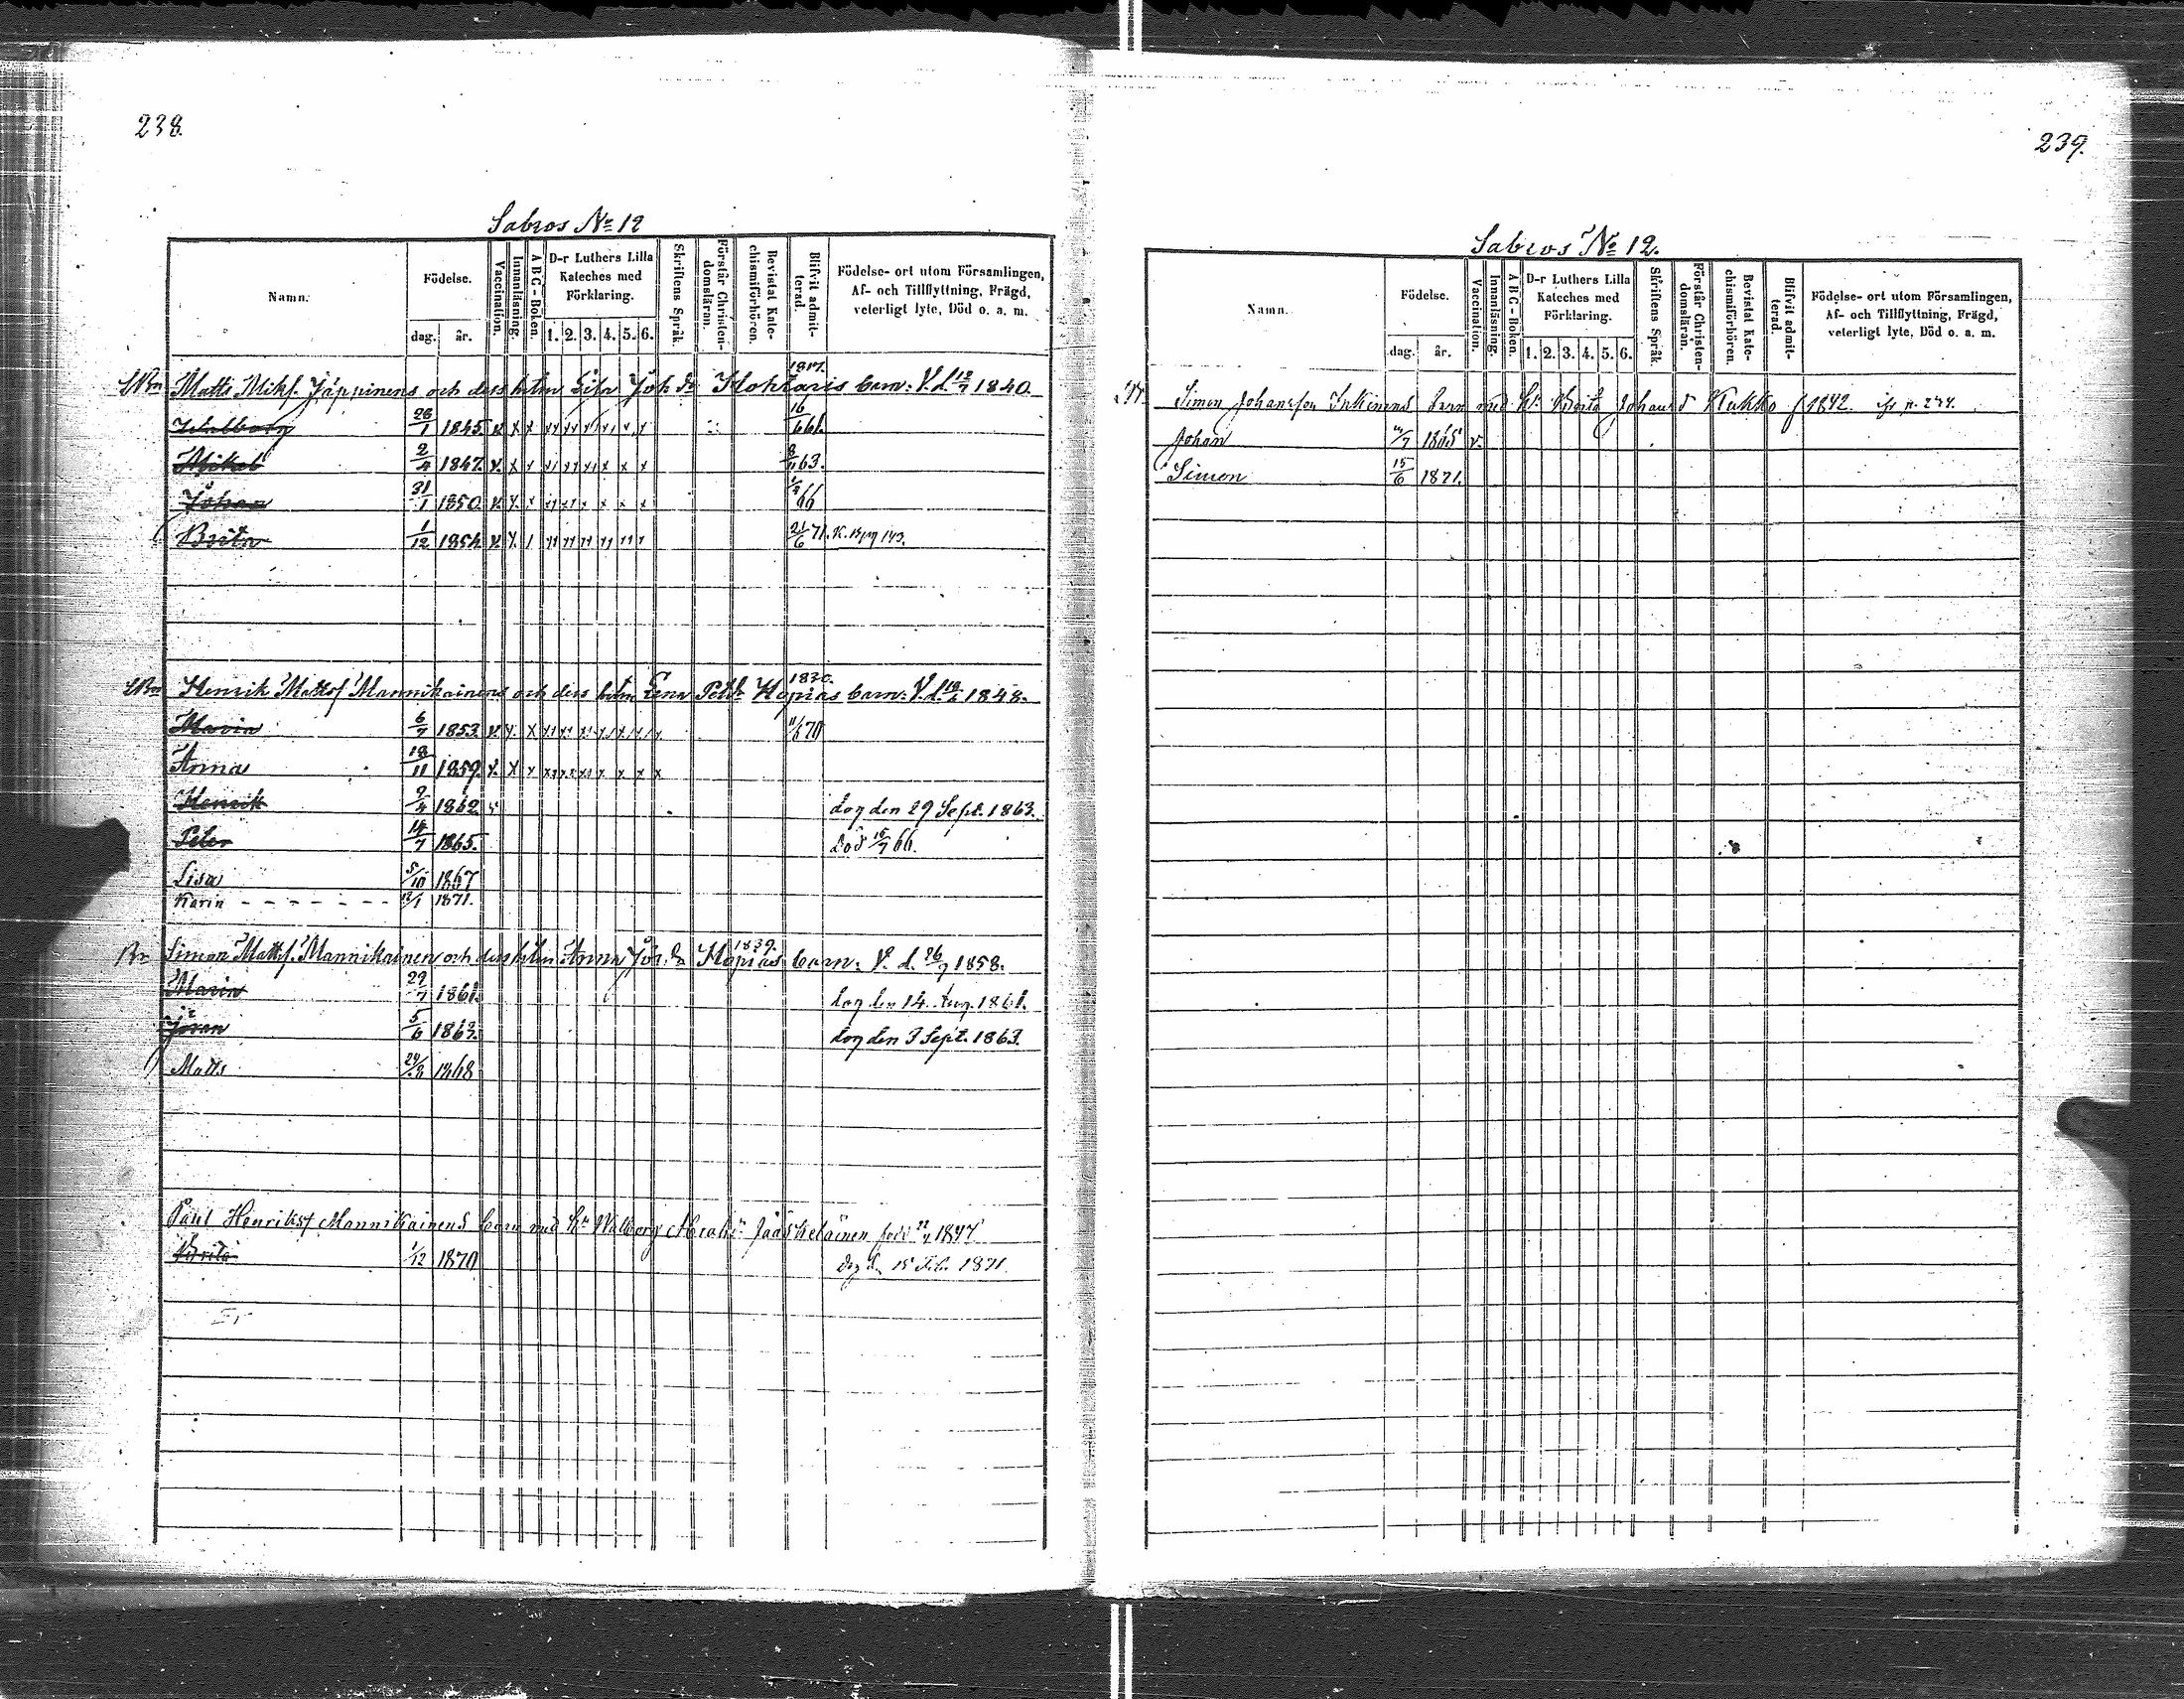 238.
Sabros No 12
Namn.
Födelse.
dag. år.
Vaccination.
Innanläsning.
A B C - Boken.
D-r Luthers Lilla Kateches med Förklaring.
1. 2. 3. 4. 5. 6.
Skriftens Språk.
Förstår Christen-domsläran.
Bevistat Kate-chismiförhören.
Blifvit admit-terad.
Födelse- ort utom Församlingen, Af- och Tillflyttning, Frägd, veterligt lyte, Död o. a. m.
1817.
Matts Mikf. Jäppinens och dess hstru Lisa Joh. dr Kohtaris barn: V. d. 12/7 1840.
Walborg 26/1 1845. v x x 61.
Mikel 2/4 1847. v. x 8/11 63.
Johan 31/1 1850. v. x x 66
Brita 1/12 1854. v. x 21/6 71.
1830.
Henrik Mattsf Mannikainens och dess hstru Lena Pettr Kopias barn: V. d. 1848.
Maria 6/7 1853. v. x. x 70
Anna 18/11 1859. v. x x
Henrik 9/4 1862. dog den 29 Sept. 1863.
Peter 14/7 1865. Död 15/7 66.
Lisa 5/10 1867
Karin - - - - - - - 12/1 1871.
1839.
Simon Mattsf. Mannikainen och dess hstru Anna Jör. dr Kopias barn: V. d. 26/9 1858.
Maria 29/7 1861. dog den 14. Aug. 1861.
Jöran 5/6 1863. dog den 3 Sept. 1863.
Matts 24/8 1868
Paul Henriksf Mannikainens barn med h. Walborg Jääskeläinen född 1847
Brita 1/12 1870 dog d. 15 Feb. 1871
239.
Sabros No 12.
Namn.
Födelse.
dag. år.
Vaccination.
Innanläsning.
A B C - Boken.
D-r Luthers Lilla Kateches med Förklaring.
1. 2. 3. 4. 5. 6.
Skriftens Språk
Förstår Christen-domsläran.
Bevistat Kate-chismiförhören.
Blifvit admit-terad.
Födelse- ort utom Församlingen, Af- och Tillflyttning, Frägd, veterligt lyte, Död o. a. m.
Simon Johansson Inkinens barn med h. Brita Johans d Kukko f 1842.
Johan 1865 v.
Simon 15/6 1871.